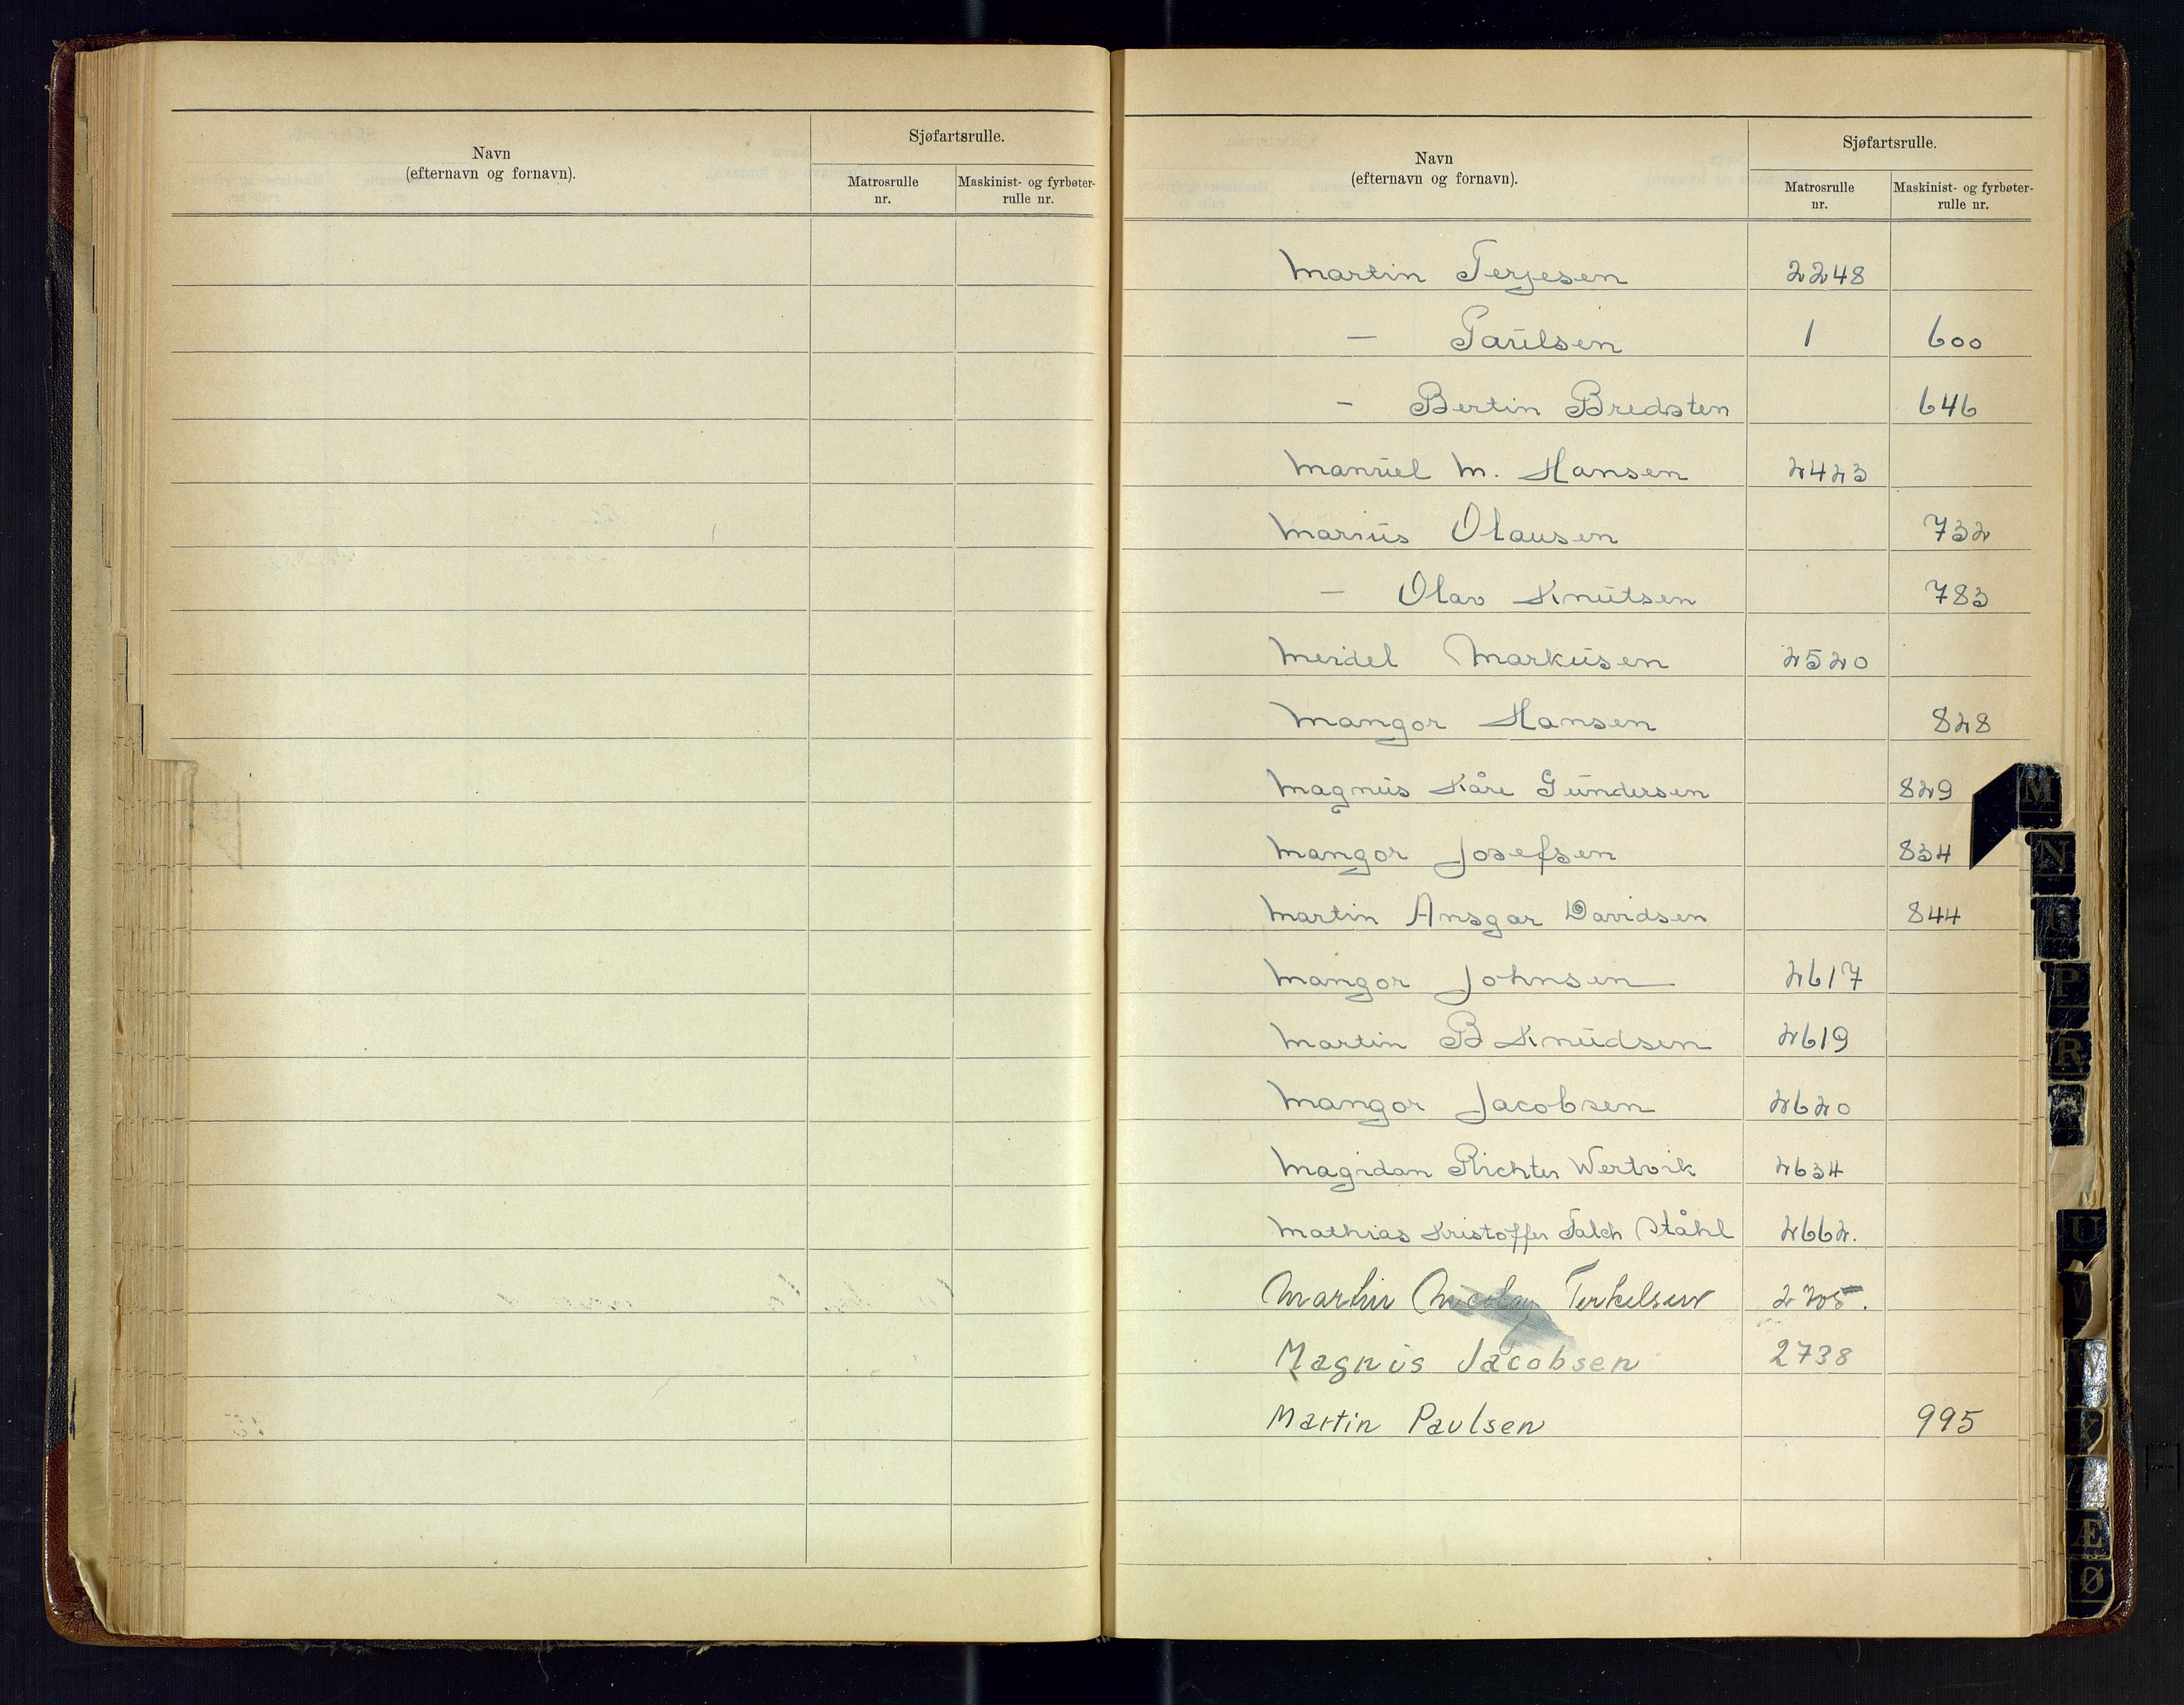 Navn
(efternavn og fornavn).
Sjøfartsrulle.
Matrosrulle
nr.
Maskinist- og fyrbøter-
rulle nr.
Navn
(efternavn og fornavn).
Sjøfartsrulle.
Matrosrulle
nr.
Maskinist- og fyrbøter-
rulle nr.
Martin Terjesen 2248
— Paulsen 1 600
— Bertin Bredsten 646
Manuel M. Hansen 2423
Marius Olausen 732
— Olav Knutsen 783
Meidel Markusen 2520
Mangor Hansen 828
Magnus Kåre Gundersen 829
Mangor Josefsen 834
Martin Ansgar Davidsen 844
Mangor Johnsen 2617
Martin B Knudsen 2619
Mangor Jacobsen 2620
Magidan Richter Wertvik 2634
Mathias Kristoffer Falch Ståhl 2662.
Martin Nicolay Terkelsen 2705.
Magnus Jacobsen 2738
Martin Paulsen 995
M
N
O
P
R
U
V
Y
Æ
Ø